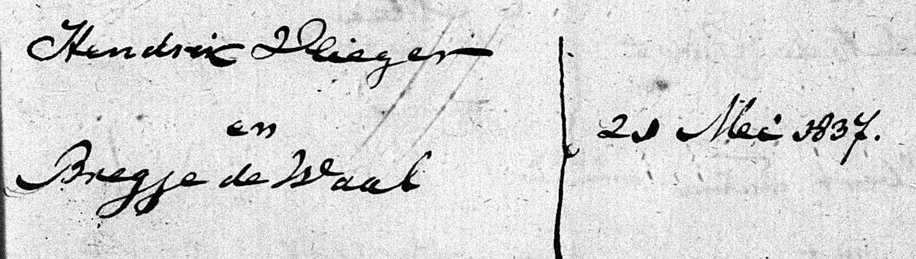 Hendrik Vlieger
en
Bregje de Waal
21 Mei 1837.